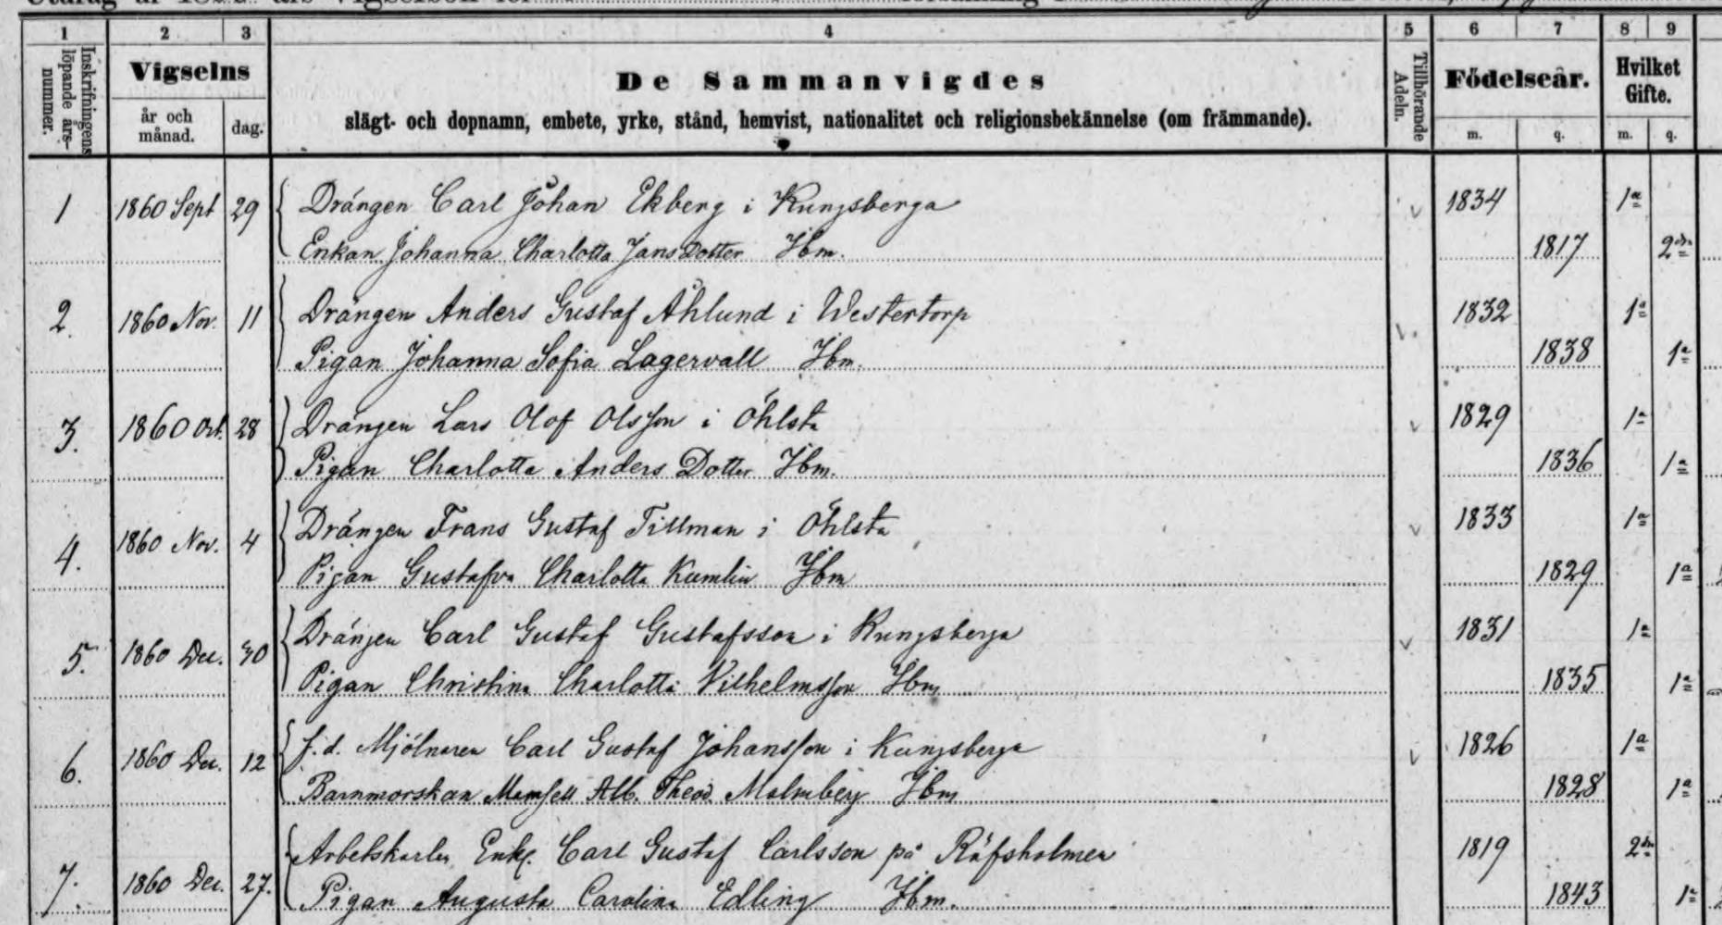 1 2 3 4 5 6 7 8 9
Inskrifningens löpande års-nummer.
Vigselns
år och månad.
dag.
De Sammanvigdes
slägt- och dopnamn, embete, yrke, stånd, hemvist, nationalitet och religionsbekännelse (om främmande).
Tillhörande Adeln.
Födelseår.
m. q.
Hvilket Gifte.
m. q.
1 1860 Sept 29 Drängen Carl Johan Ekberg i Kungsberga 1834 1a
Enkan Johanna Charlotta Jans Dotter Ibm. 1817 2dra
2. 1860 Nov. 11 Drängen Anders Gustaf Åhlund i Westertorp 1832 1a
Pigan Johanna Sofia Lagervall Ibm. 1838 1a
3. 1860 Oct. 28 Drängen Lars Olof Olsson i Öhlsta 1829 1a
Pigan Charlotta Anders Dotter Ibm. 1836 1a
4. 1860 Nov. 4 Drängen Frans Gustaf Tillman i Öhlsta 1833 1a
Pigan Gustafva Charlotta Kumlin Ibm 1829 1a
5. 1860 Dec. 30 Drängen Carl Gustaf Gustafsson i Kungsberga 1831 1a
Pigan Christina Charlotta Vilhelmsson Ibm 1835 1a
6. 1860 Dec. 12 f.d. Mjölnaren Carl Gustaf Johansson i Kungsberga 1826 1a
Barnmorskan Mamsell Alb. Theod. Malmberg Ibm 1828 1a
7. 1860 Dec. 27. Arbetskarlen Enkl. Carl Gustaf Carlsson på Räfsholmen 1819 2dra
Pigan Augusta Carolina Edling Ibm. 1843 1a